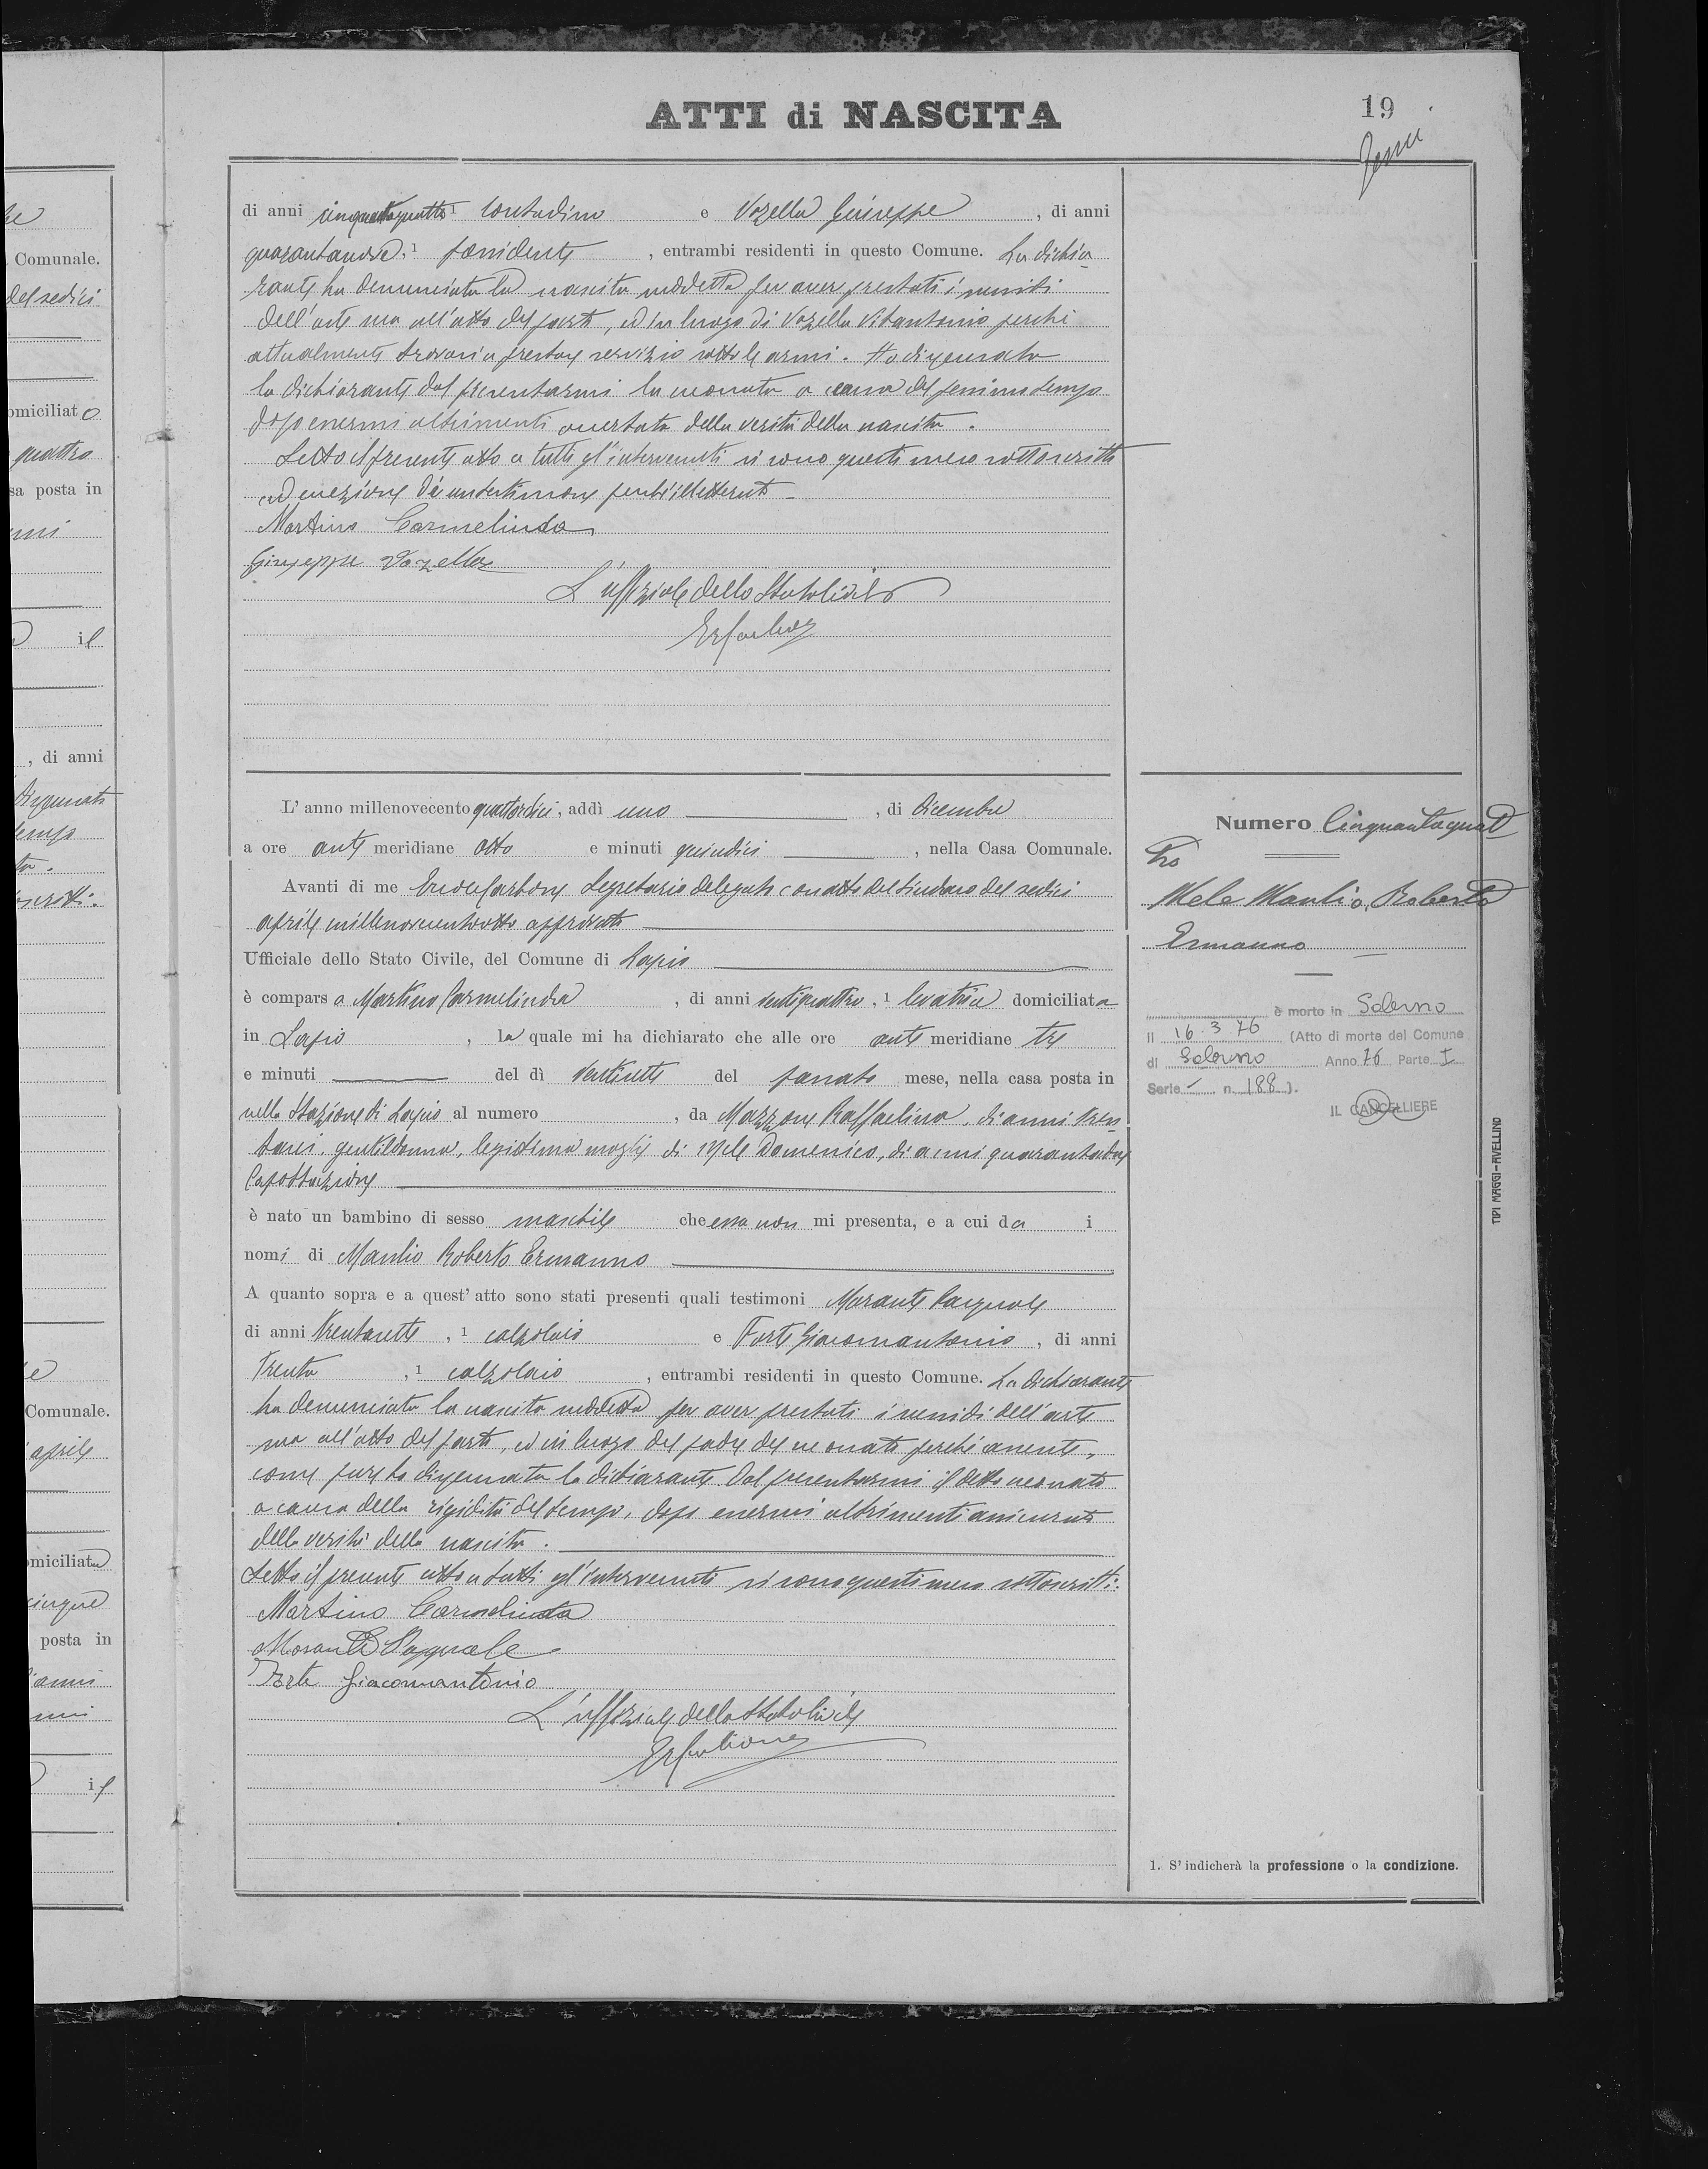 ATTI di NASCITA
19
di anni cinquantaquattro 1 contadino e Vozella Giuseppe, di anni
quarantanove, 1 possidente, entrambi residenti in questo Comune. La dichia
rante ha denunciata la nascita suddetta per aver prestati i sussidi
dell'arte sua all'atto del parto, ed in luogo di Vozella Vitantonio perchè
attualmente trovasi a prestare servizio sotto le armi. Ho dispensata
la dichiarante dal presentarmi la neonata a causa del pessimo tempo
dopo essermi altrimenti accertato della verità della nascita.
Letto il presente atto a tutti gl'intervenuti si sono questi meco sottoscritti
ad eccezione di un testimone perchè illetterato
Martino Carmelinda
Giuseppe Vozella
L'uffiziale dello Stato Civile
L'anno millenovecento quattordici, addì uno, di dicembre
a ore anti meridiane otto e minuti quindici, nella Casa Comunale.
Avanti di me Carbone Segretario delegato con atto del Sindaco del sedici
aprile millenovecentootto approvato
Ufficiale dello Stato Civile, del Comune di Lapio
è comparsa Martino Carmelinda, di anni ventiquattro, 1 levatrice domiciliata
in Lapio, la quale mi ha dichiarato che alle ore anti meridiane tre
e minuti del dì ventisette del passato mese, nella casa posta in
nella Stazione di Lapio al numero, da Mazzone Raffaelina, di anni tren
tasei, gentildonna, legittima moglie di Mele Domenico, di anni quarantadue
Capostazione
è nato un bambino di sesso maschile che essa non mi presenta, e a cui da i
nomi di Manlio Roberto Ermanno
A quanto sopra e a quest'atto sono stati presenti quali testimoni Morante Pasquale
di anni trentasette, 1 calzolaio e Forte Giacomantonio, di anni
trenta, 1 calzolaio, entrambi residenti in questo Comune. La dichiarante
ha denunciata la nascita suddetta per aver prestati i sussidi dell'arte
sua all'atto del parto, ed in luogo del padre del neonato perchè assente,
come pure ho dispensata la dichiarante dal presentarmi il detto neonato
a causa della rigidità del tempo, dopo essermi altrimenti assicurato
della verità della nascita.
Letto il presente atto a tutti gl'intervenuti si sono questi meco sottoscritti.
Martino Carmelinda
Morante Pasquale
Forte Giacomantonio
L'uffiziale dello Stato Civile
Numero Cinquantaquat
tro
Mele Manlio, Roberto
Ermanno
è morto in Salerno
Il 16.3.76 (Atto di morte del Comune
di Salerno Anno 76 Parte I
Serie - n. 188).
IL CANCELLIERE
TIPI MAGGI-AVELLINO
1. S'indicherà la professione o la condizione.
Comunale.
del sedici
omiciliato
quattro
sa posta in
il
, di anni
Comunale.
aprile
omiciliata
cinque
posta in
il